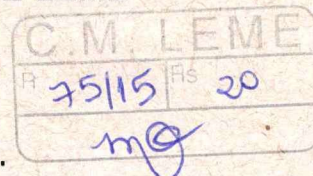 C.M. LEME
P 75/15 Fls 20